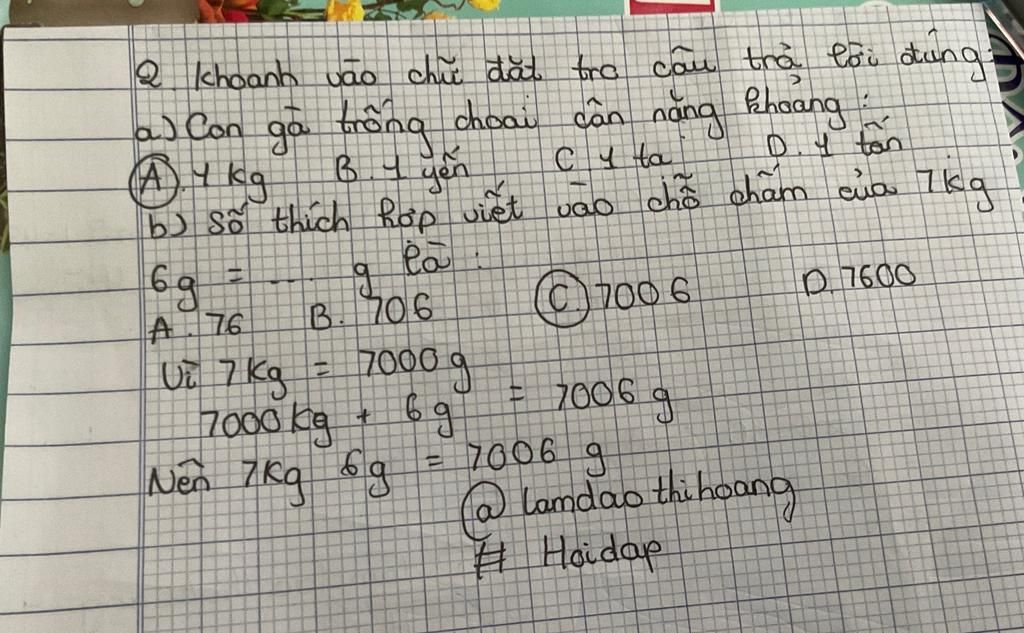 2 Khoanh vào chữ đặt trc câu trả lời đúng:
a) Con gà trống choai cân nặng khoảng:
A. 1 kg B. 1 yến C 1 tạ D. 1 tấn
b) Số thích hợp viết vào chỗ chấm của 7kg
6g = .... g là :
A. 76 B. 706 C. 7006 D. 7600
Vì 7kg = 7000g
7000kg + 6g = 7006 g
Nên 7kg 6g = 7006 g
@ lamdaothihoang
# Hoidap